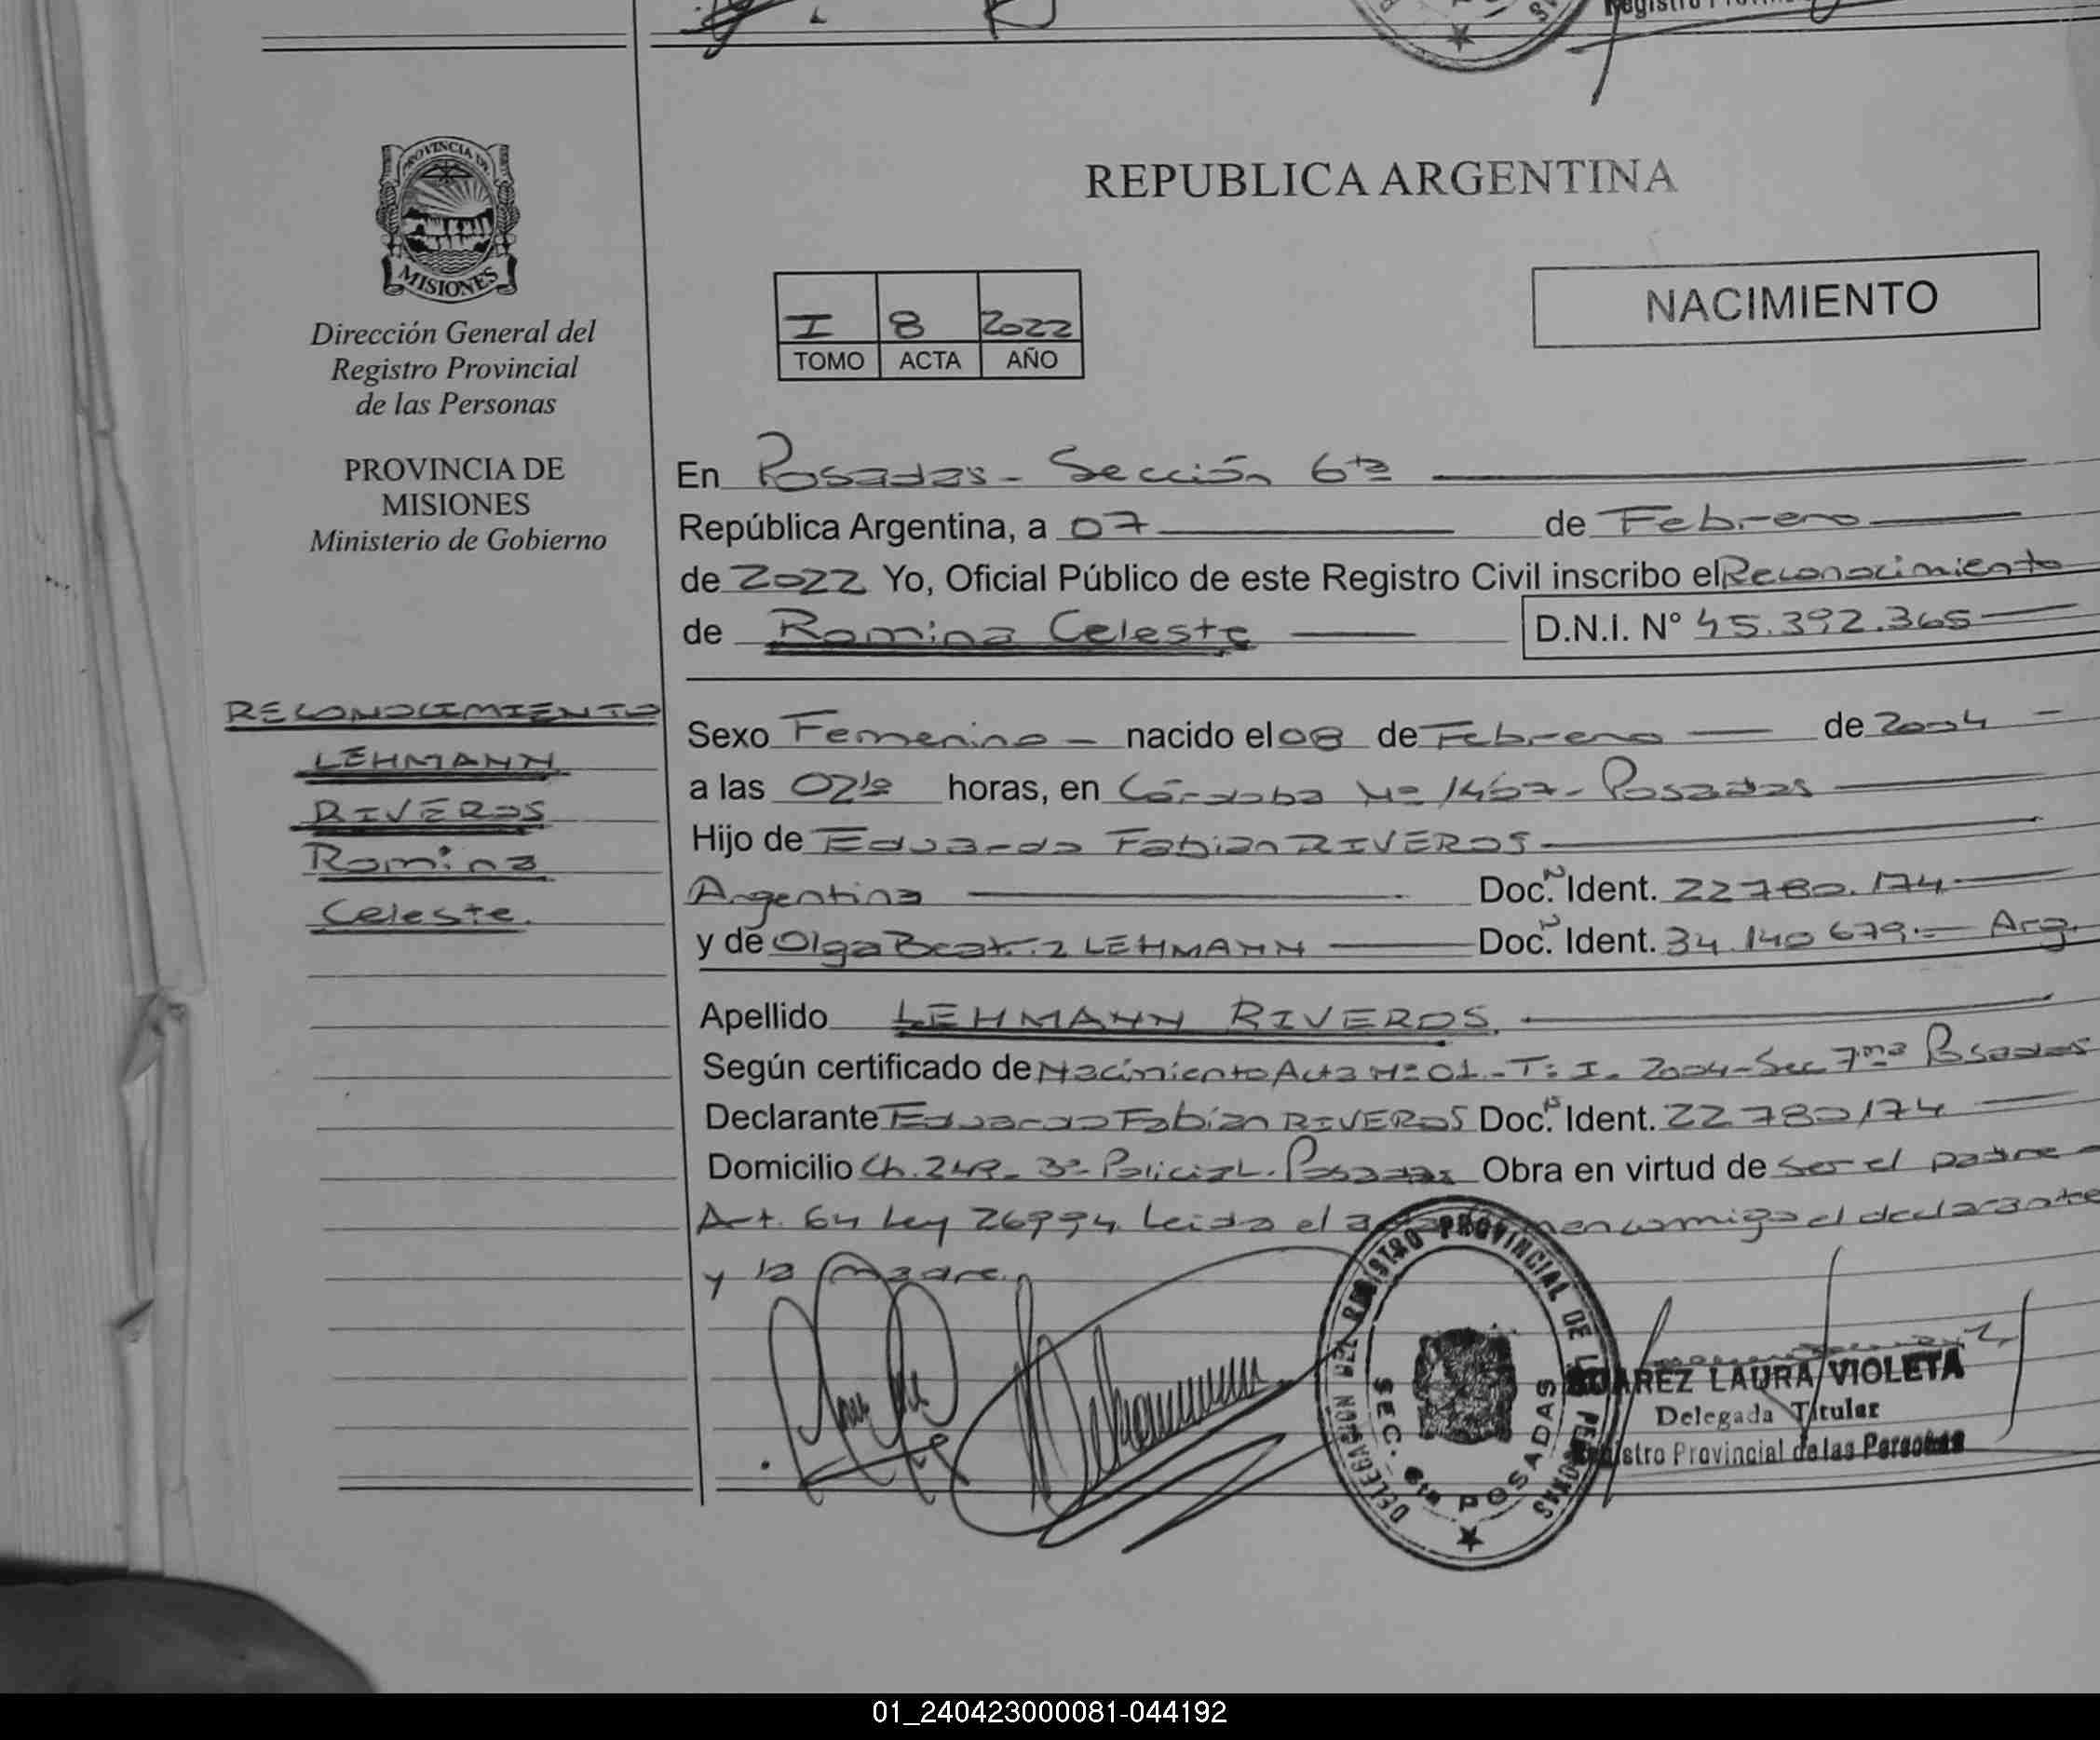 REPUBLICA ARGENTINA
PROVINCIA DE
MISIONES
Dirección General del
Registro Provincial
de las Personas
PROVINCIA DE
MISIONES
Ministerio de Gobierno
I 8 2022
TOMO ACTA AÑO
NACIMIENTO
En Posadas - Sección 6ta
República Argentina, a 07 de Febrero
de 2022 Yo, Oficial Público de este Registro Civil inscribo el Reconocimiento
de Romina Celeste D.N.I. N° 45.392.365
RECONOCIMIENTO
LEHMANN
RIVEROS
Romina
Celeste.
Sexo Femenino - nacido el 08 de Febrero de 2004 -
a las 02 horas, en Córdoba Nº Posadas
Hijo de Eduardo Fabian RIVEROS
Argentina Doc. Ident. 22 780.174
y de Olga Beatriz LEHMANN Doc. Ident. 34.140 679.- Arg.
Apellido LEHMANN RIVEROS.
Según certificado de Nacimiento Acta Nº 01 - T: I - 2004 - Sec 7ma Posadas
Declarante Eduardo Fabián RIVEROS Doc. Ident. 22 780174
Domicilio Ch. Posadas Obra en virtud de ser el padre
Art. 64 Ley 26994. Leida el conmigo el declarante
y la madre.
DELEGACION DEL REGISTRO PROVINCIAL DE LAS PERSONAS
SEC. 6ta POSADAS
SUAREZ LAURA VIOLETA
Delegada Titular
Registro Provincial de las Personas
01_240423000081-044192